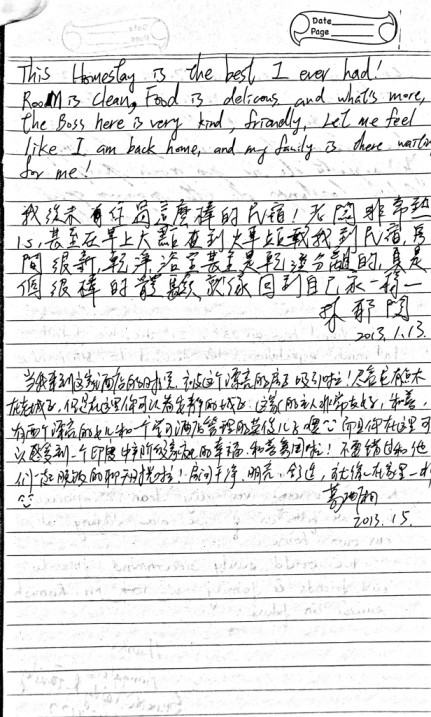 Date
Page
This Homestay is the best I ever had!
Room is clean, Food is delicous and what's more,
the Boss here is very kind, friendly, Let me feel
like I am back home, and my family is there waiting
for me!
我從未有住過這麼棒的民宿!老闆非常熱
心,甚至在早上六點直到火車站載我到民宿,房
間很新,乾淨,浴室甚至是乾溼分離的,真是
個很棒的體驗,就像回到自己家一樣~
林郁
2013.1.13.
当我来到这家酒店的时候,就被这个漂亮的房子吸引啦!尽管它不
在老城区,但是在这里你可以看安静的城市。这家的主人非常友好,和善,
有两个漂亮的女儿和一个学习酒店管理的 而且你在这里可
以感受到一个印度中产阶级家庭的幸福和善美满啦!不要错过和他
们一起 的聊天时光哦!房间干净,明亮,舒适,就像在家里一样
2013.1.5.